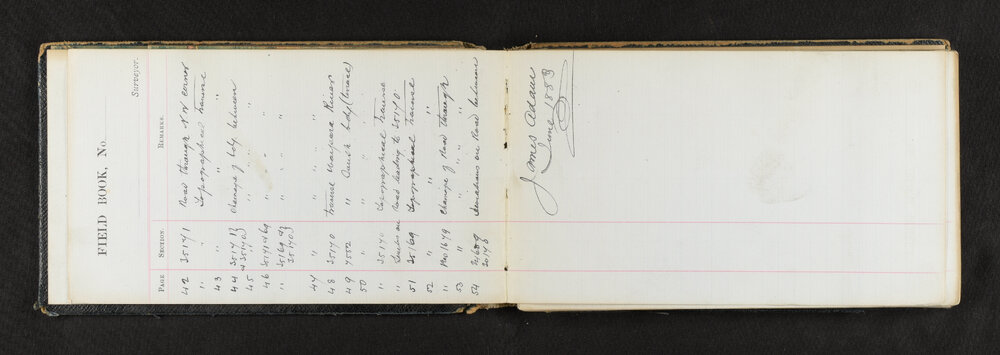 FIELD BOOK, No.
Surveyor.
PAGE SECTION. REMARKS.
42 35171 Road through NW corner
" " Topographical traverse
43 " "
44 35171 & 35170 Chainage of bdy between
45 " "
46 35171 & 69 " "
" 35169 & 35170 " "
47 " " "
48 35170 Traverse Waipara River
49 7552 " South bdy (terrace)
50 " " "
" 35170 Topographical traverse
" Road leading to 35170
51 35169 Topographical traverse
52 " "
" 1679 Chainage of Road through
53 " " " "
54 on Road between
James Adam
June 1883